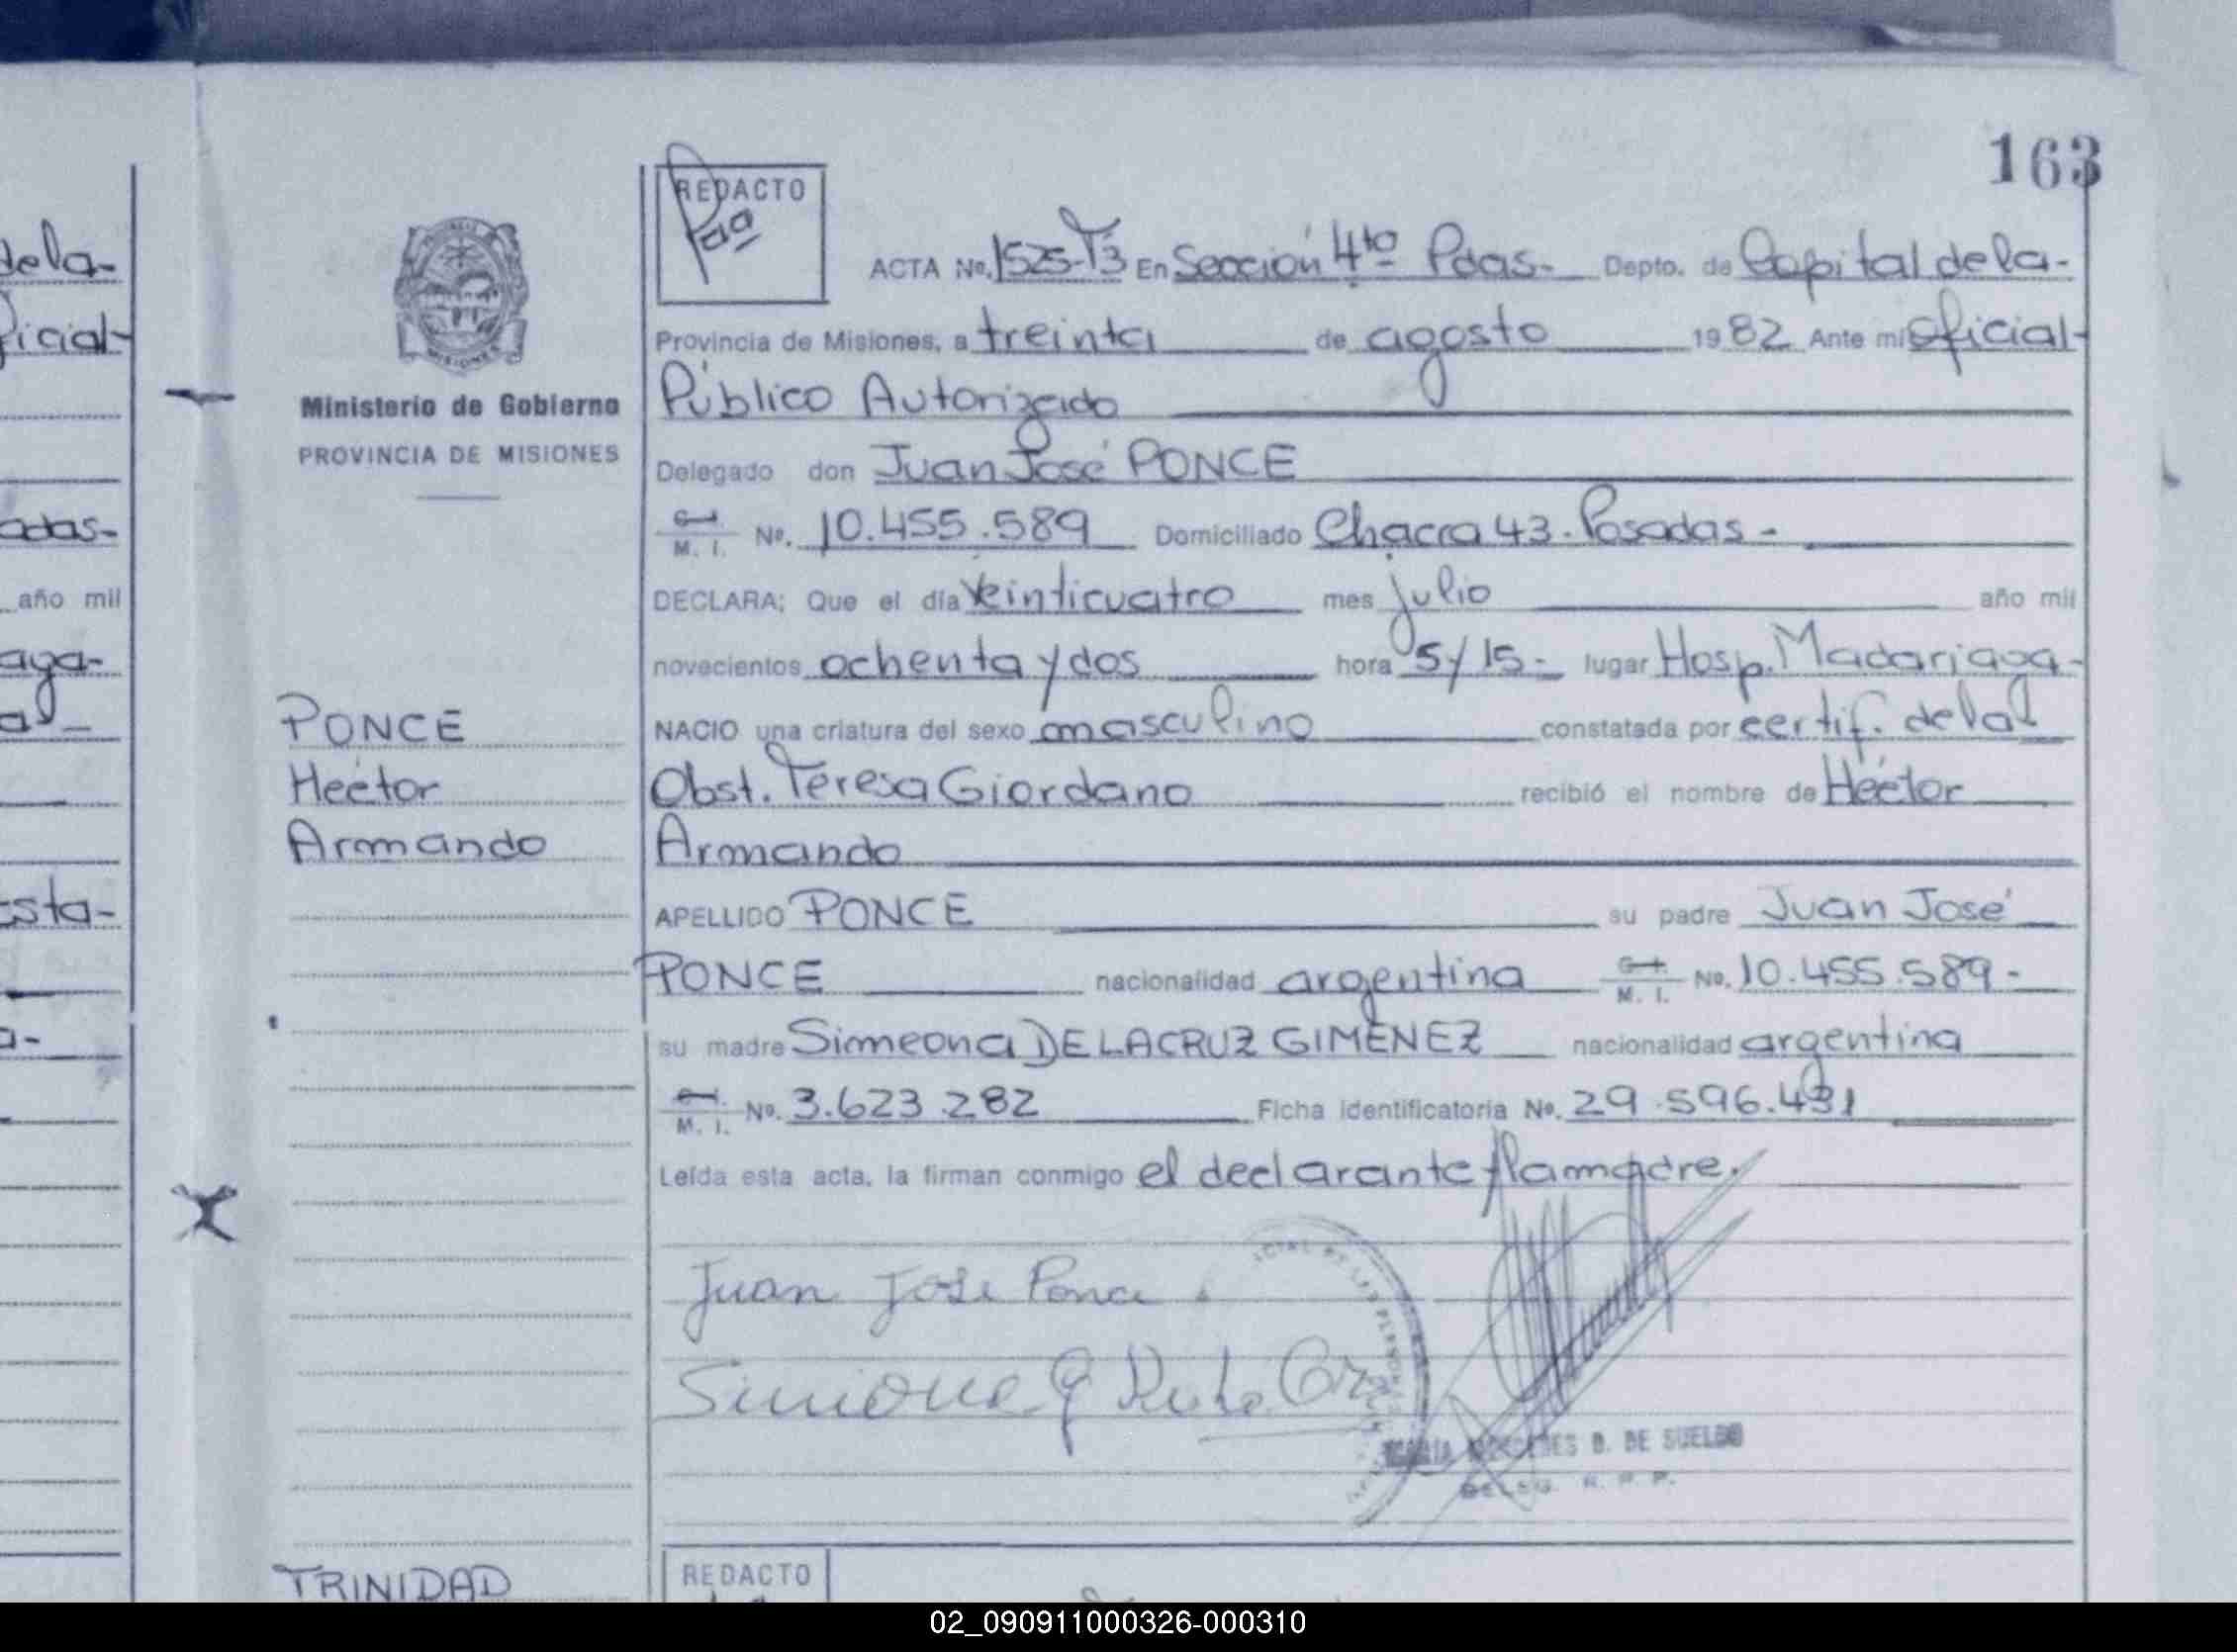 163
REDACTO
ACTA No. 1525-T3 En Sección 4to Pdas- Depto. de Capital de la-
Provincia de Misiones, a treinta de agosto 1982 Ante mi Oficial-
Público Autorizado
Ministerio de Gobierno
PROVINCIA DE MISIONES
Delegado don Juan José PONCE
M. I. No. 10.455.589 Domiciliado Chacra 43-Posadas-
DECLARA; Que el día veinticuatro mes julio año mil
novecientos ochenta y dos hora 5/15- lugar Hosp. Madariaga-
PONCE
Héctor
Armando
NACIO una criatura del sexo masculino constatada por certif. de la
Obst. Teresa Giordano recibió el nombre de Héctor
Armando
APELLIDO PONCE su padre Juan José
PONCE nacionalidad argentina M. I. No. 10.455.589-
su madre Simeona DE LA CRUZ GIMENEZ nacionalidad argentina
M. I. No. 3.623.282 Ficha identificatoria No. 29.596.431
Leída esta acta, la firman conmigo el declarante y la madre.
Juan Jose Ponce
B. DE SUELDO
TRINIDAD
REDACTO
dela-
ficial-
adas-
año mil
aga-
al-
sta-
a-
02_090911000326-000310